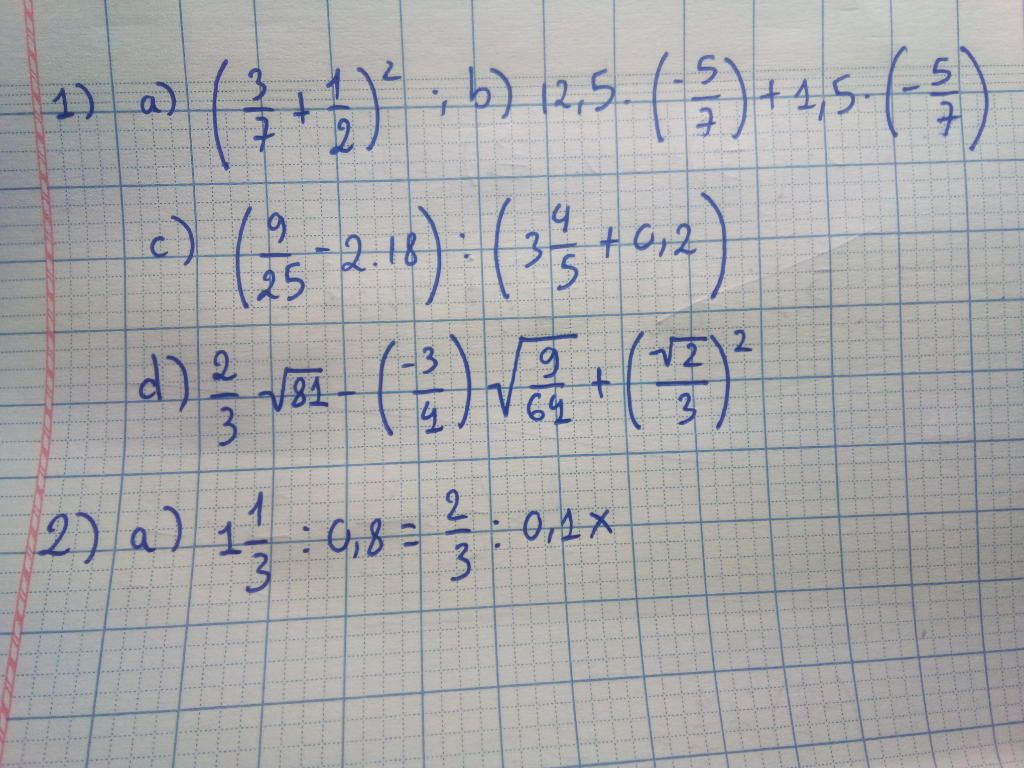 1) a) (3/7 + 1/2)² ; b) 12,5 · (-5/7) + 1,5 · (-5/7)
c) (9/25 - 2.18) : (3 4/5 + 0,2)
d) 2/3 √81 - (-3/4) √(9/64) + (-√2/3)²
2) a) 1 1/3 : 0,8 = 2/3 : 0,1x